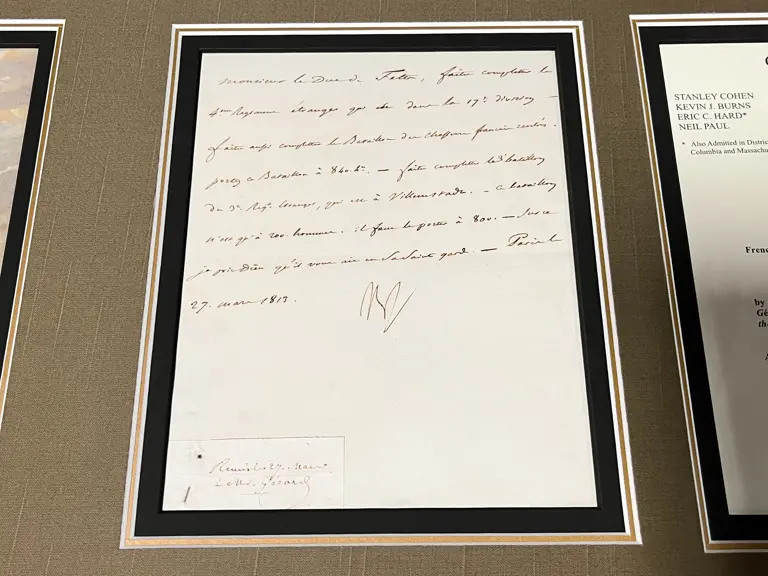 monsieur le Duc de Feltre, faites completter le
4eme Regiment étranger qui est dans la 17e division —
faites aussi completter le Bataillon de chasseurs francs rentrés.
portez ce Bataillon à 840 h. — faites completter le Bataillon
du 3e Regt étranger, qui est à Villemstadt. — ce bataillon
n'est qu'à 200 hommes. il faut le porter à 800. — Sur ce
je prie Dieu qu'il vous ait en Sa Sainte garde. — Paris le
27. mars 1813.
Np
Remis le 27. Mars
à Mr. Gérard
STANLEY COHEN
KEVIN J. BURNS
ERIC C. HARD*
NEIL PAUL
* Also Admitted in
Columbia and
by